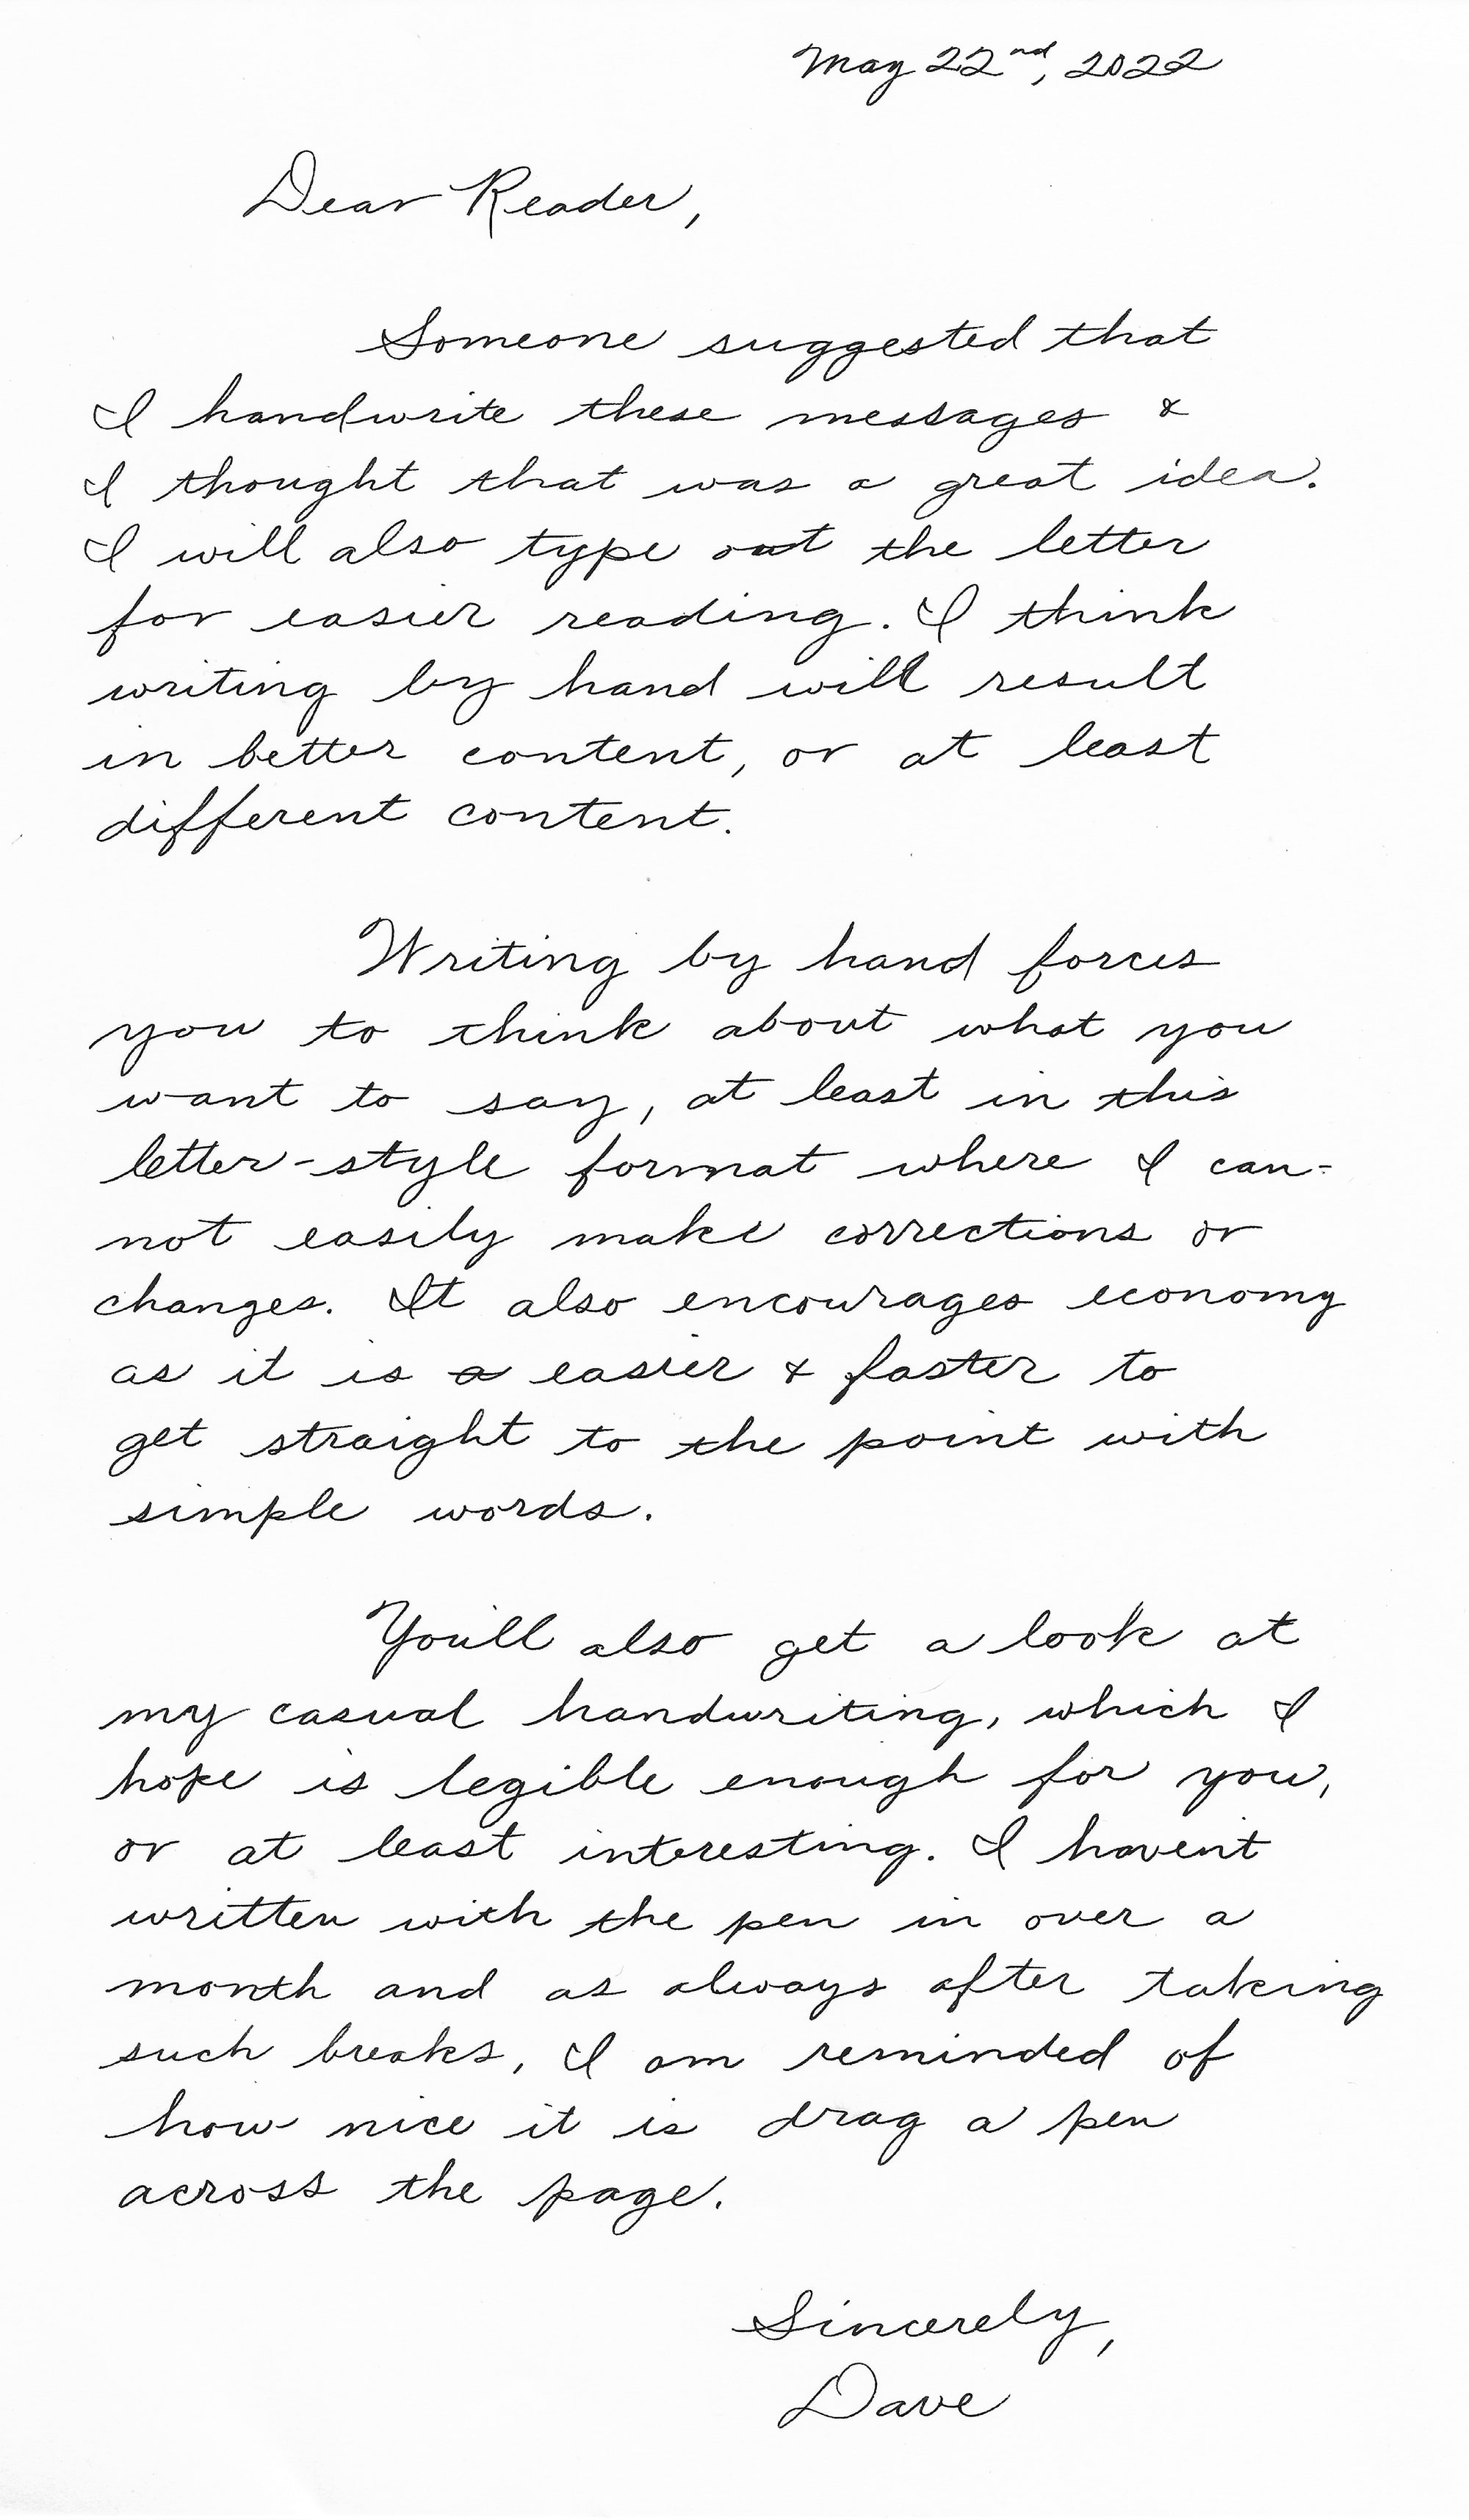 May 22nd, 2022
Dear Reader,
Someone suggested that
I handwrite these messages &
I thought that was a great idea.
I will also type out the letter
for easier reading. I think
writing by hand will result
in better content, or at least
different content.
Writing by hand forces
you to think about what you
want to say, at least in this
letter-style format where I can-
not easily make corrections or
changes. It also encourages economy
as it is a easier & faster to
get straight to the point with
simple words.
You'll also get a look at
my casual handwriting, which I
hope is legible enough for you,
or at least interesting. I haven't
written with the pen in over a
month and as always after taking
such breaks, I am reminded of
how nice it is drag a pen
across the page.
Sincerely,
Dave